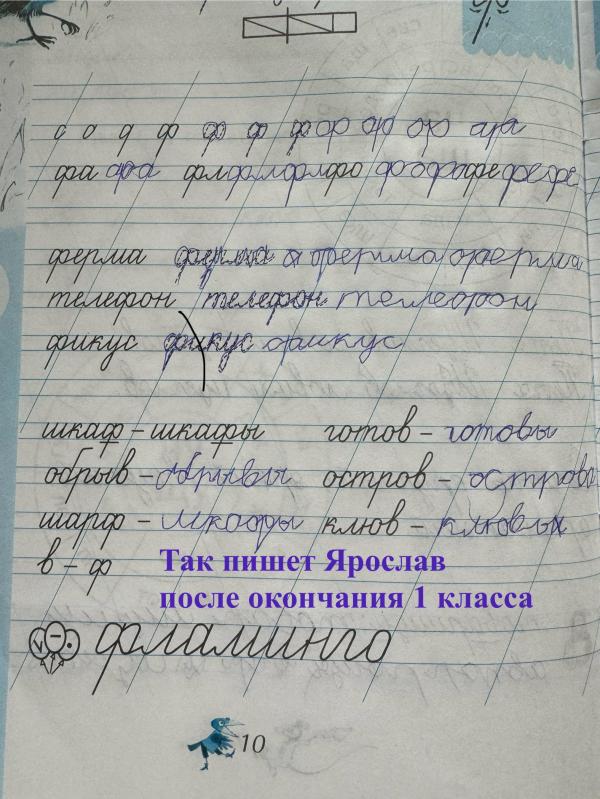 с о q ф ф ф ф ор ор ор ара
фа фа флфлфлфо фофофефефе
ферма ферма а ферма ферма
телефон телефон телефон
фикус фикус фикус
шкаф – шкафы готов – готовы
обрыв – обрывы остров – острова
шарф – шкафы клюв – клювых
в – ф
Так пишет Ярослав
после окончания 1 класса
фламинго
10